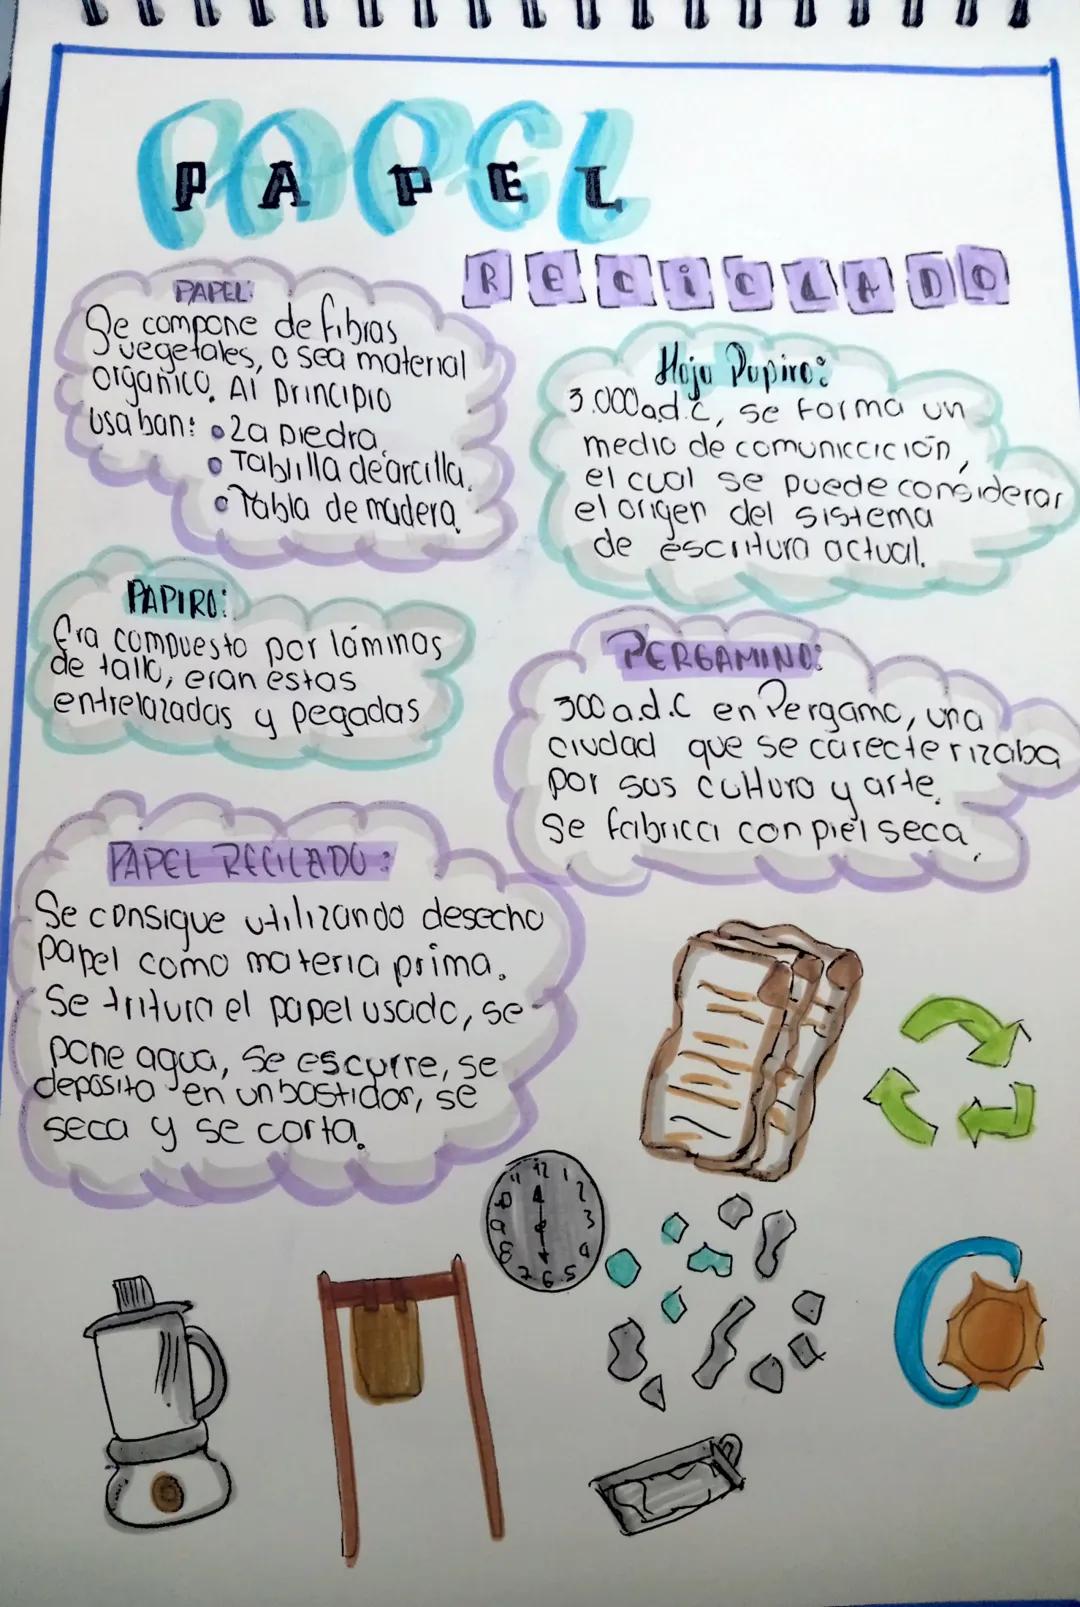 PAPEL
PAPEL
RECiCLADO
PAPEL:
Se compone de fibras
vegetales, o sea material
organico. Al principio
usaban: • La piedra.
• Tablilla de arcilla.
• Tabla de madera.
Hoja Papiro:
3.000 a.d.c, se forma un
medio de comuniccición,
el cual se puede considerar
el origen del sistema
de escritura actual.
PAPIRO:
Era compuesto por láminas
de tallo, eran estas
entrelazadas y pegadas
PERGAMINO:
300 a.d.C en Pergamo, una
ciudad que se carecterizaba
por sus cultura y arte.
Se fabrica con piel seca.
PAPEL RECICLADO:
Se consigue utilizando desecho
papel como materia prima.
Se tritura el papel usado, se
pone agua, se escurre, se
deposita en un bastidor, se
seca y se corta.
12
1
2
3
4
5
6
7
8
9
10
11